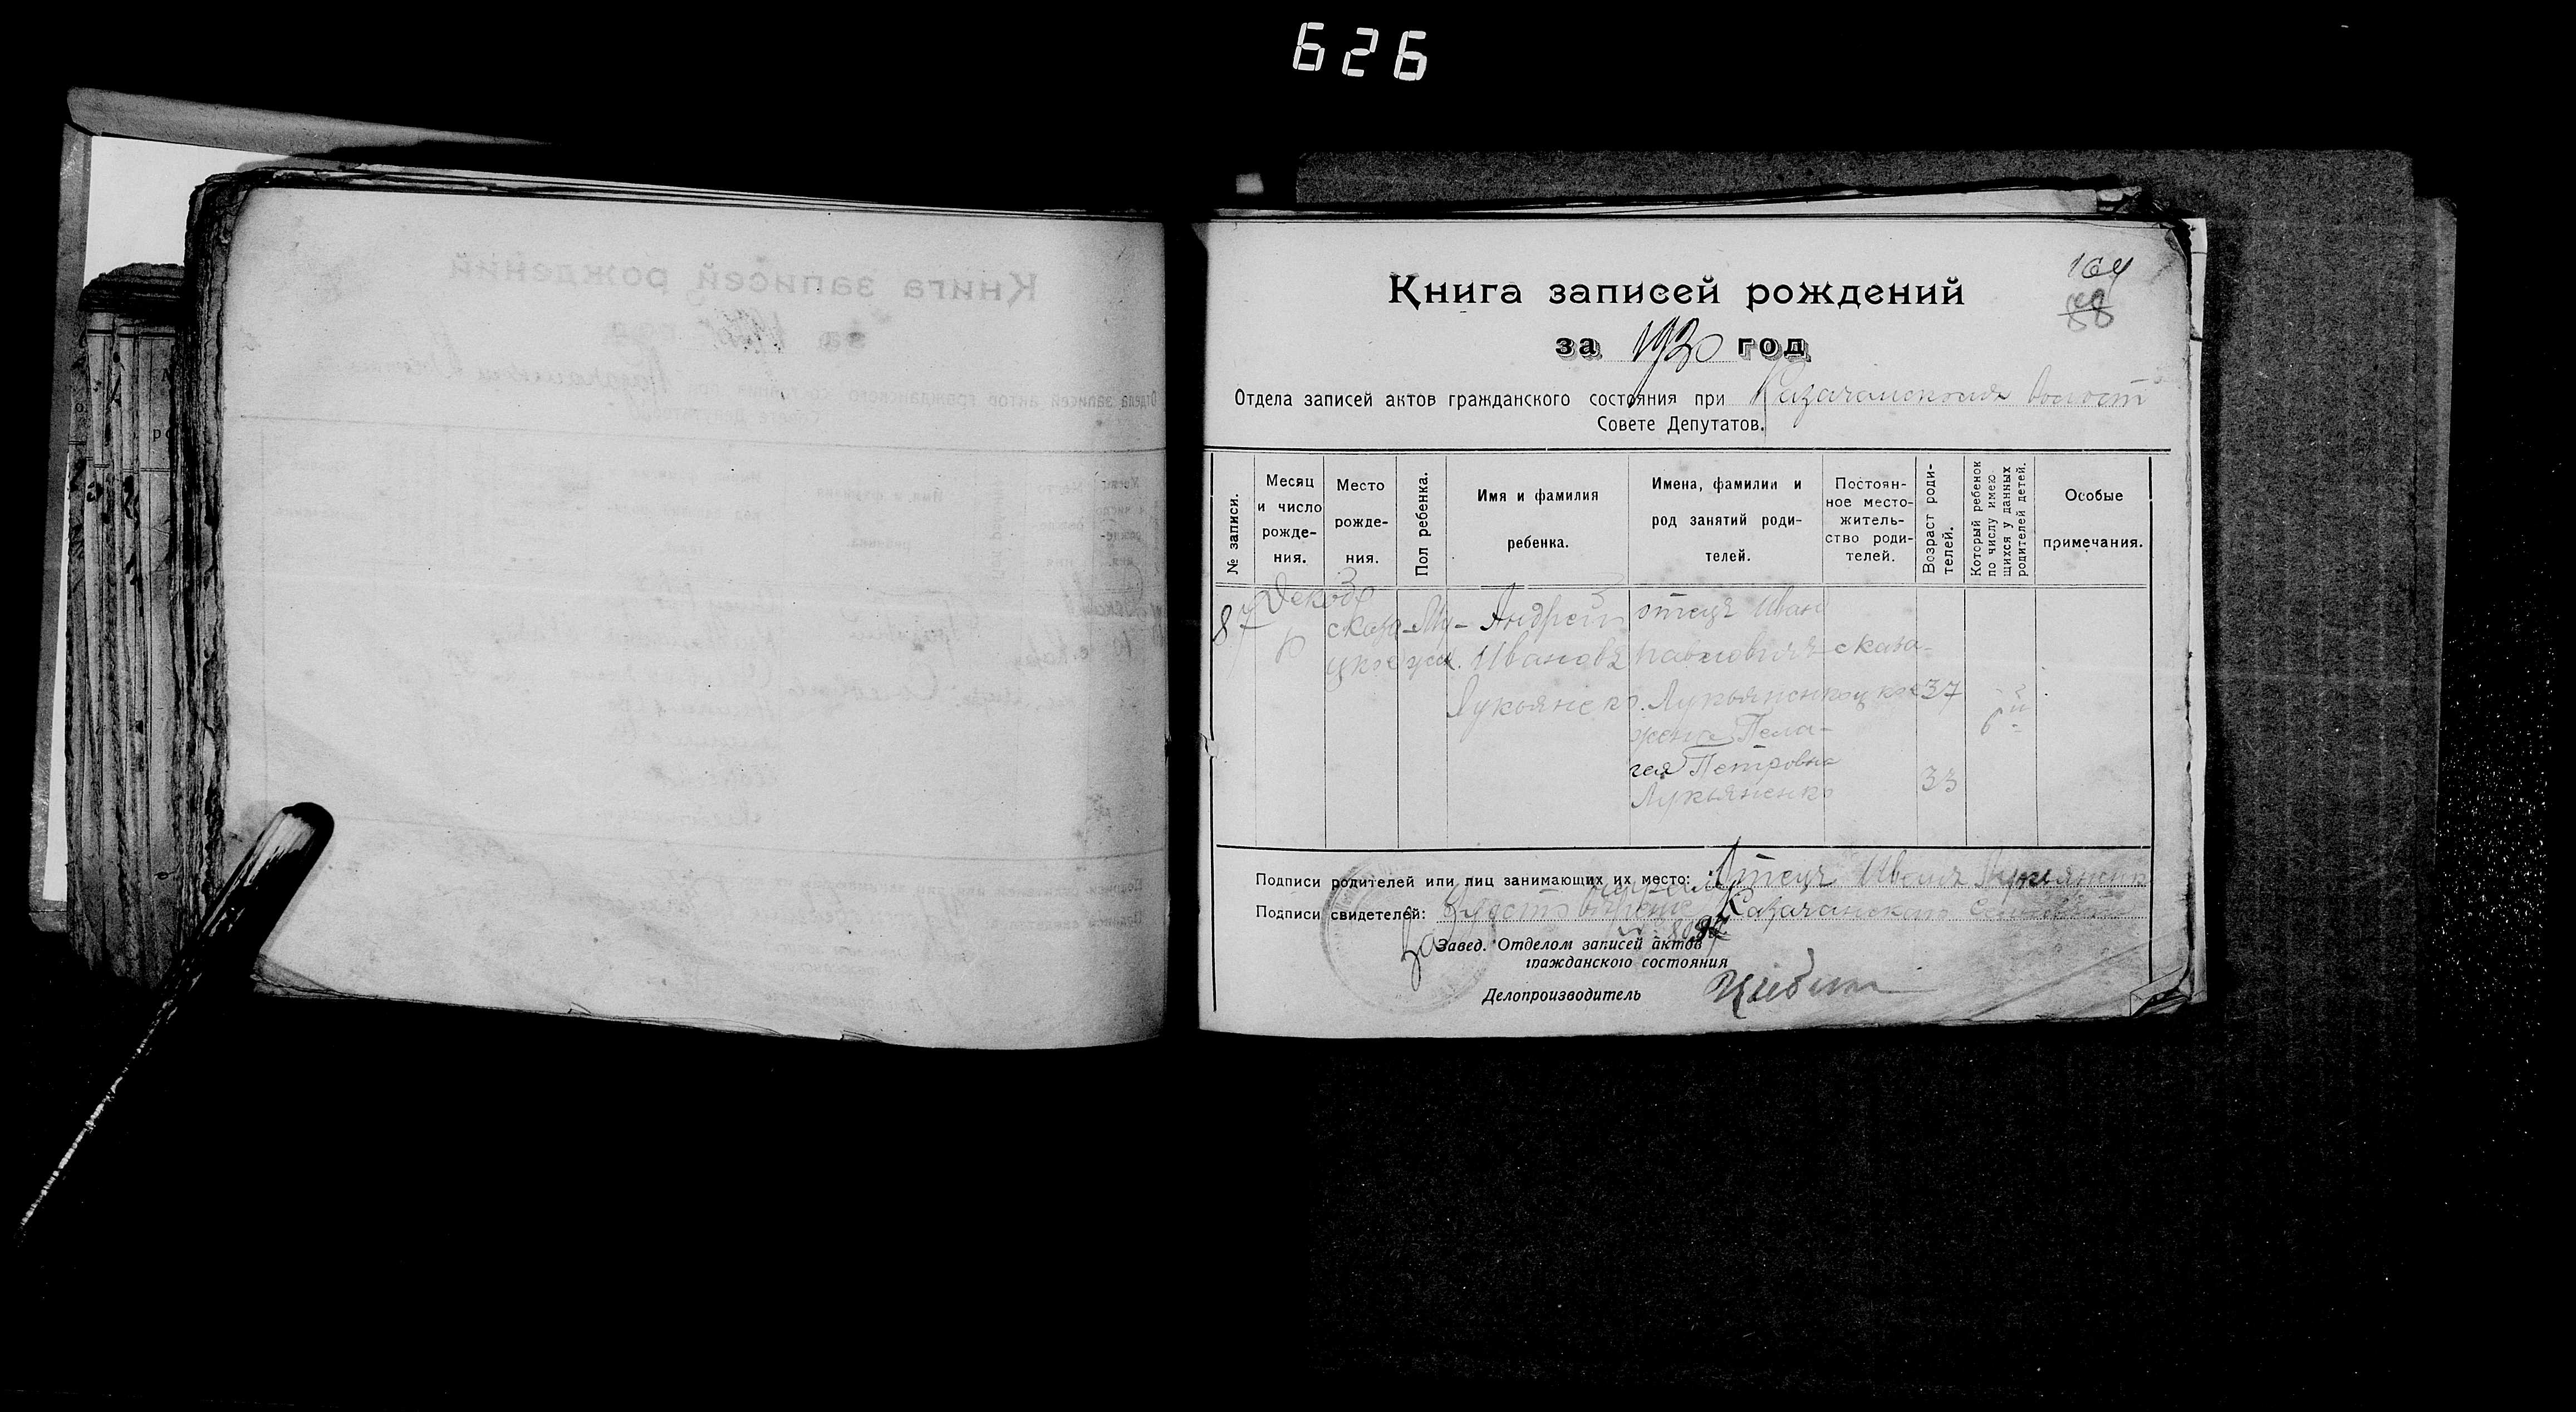 626
164
88
Книга записей рождений
за 1920 год
Отдела записей актов гражданского состояния при Казачанском Волост
Совете Депутатов.
№ записи.
Месяц и число рожде- ния.
Место рожде- ния.
Пол ребенка.
Имя и фамилия ребенка.
Имена, фамилии и род занятий роди- телей.
Постоян- ное место- житель- ство роди- телей.
Возраст роди- телей.
Который ребенок по числу имею- щихся у данных родителей детей.
Особые примечания.
87
Декабр
с Каза-
цкое
Му-
Андрей
Ивановъ
Лукьянеко.
отецъ Иван
павловичъ
Лукьяненко
жена Пела-
гея Петровна
Лукьяненко
с Каза-
цкое
37
33
6й
Подписи родителей или лиц занимающих их место: Отецъ Иванъ Лукьяненко
Подписи свидетелей: Казачанского
За Завед. Отделом записей актов
гражданского состояния
Делопроизводитель